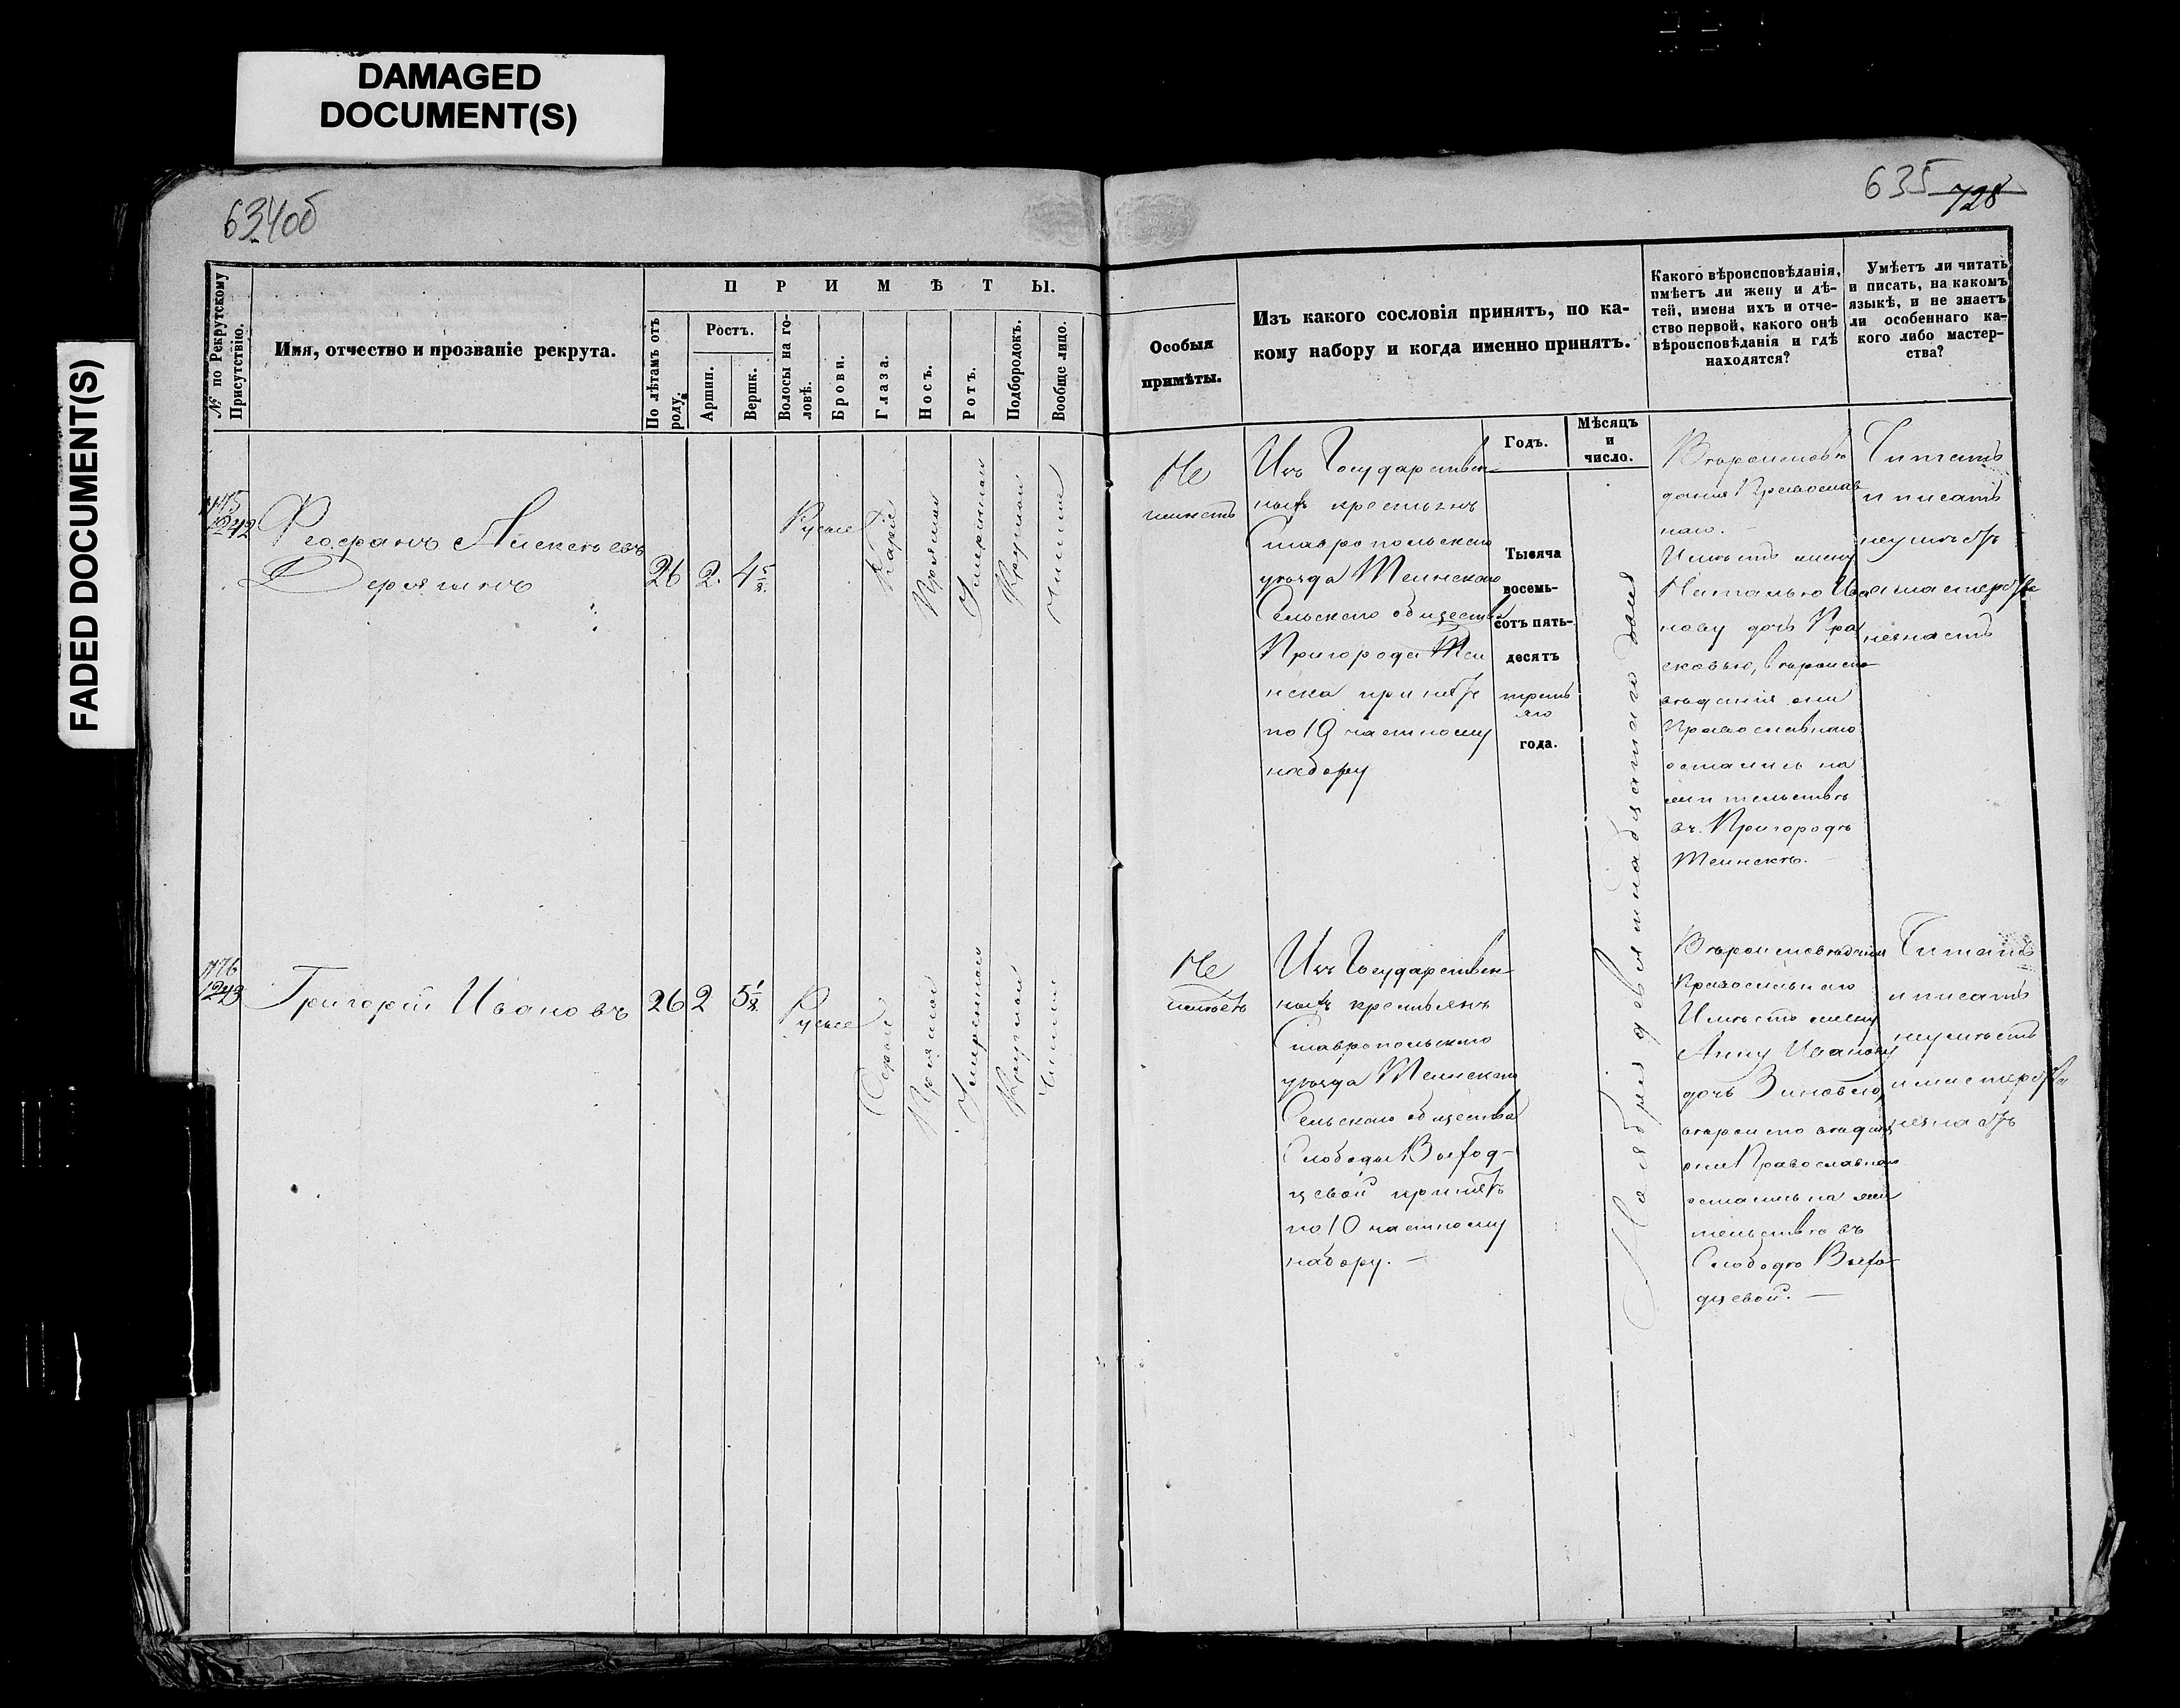 DAMAGED
DOCUMENT(S)
FADED DOCUMENT(S)
634об
635 728
№ по Рекрутскому
Присутствію.
Имя, отчество и прозваніе рекрута.
П Р И М Ѣ Т Ы.
По лѣтамъ отъ
роду.
Ростъ.
Аршин.
Вершк.
Волосы на го-
ловѣ.
Брови.
Глаза.
Носъ.
Ротъ.
Подбородокъ.
Вообще лицо.
Особыя
примѣты.
Изъ какого сословія принятъ, по ка-
кому набору и когда именно принятъ.
Годъ.
Мѣсяцъ
и
число.
Какого вѣроисповѣданія,
имѣетъ ли жену и дѣ-
тей, имена ихъ и отче-
ство первой, какого онѣ
вѣроисповѣданія и гдѣ
находятся?
Умѣетъ ли читать
и писать, на какомъ
языкѣ, и не знаетъ
ли особеннаго ка-
кого либо мастер-
ства?
1175
1242
Феофанъ Алексѣевъ
26
2.
4 5/8.
Русые
Каріе
Прямой
Умѣренной
Круглой
Чистое
Не
имѣетъ
Изъ Государствен-
ныхъ крестьянъ
Ставропольскаго
уѣзда Тѣинскаго
Сельскаго общества
Пригорода Тѣи
нска принятъ
по 10 частному
набору
Тысяча
восемь-
сотъ пять-
десятъ
треть
яго
года.
Ноября девятнадцатаго дня
Вѣроисповѣ
данія Православ
наго.
Имѣетъ жену
Наталью Ива
нову дочь Пра
сковью, вѣроиспо
вѣданія они
Православнаго
остались на
жительствѣ
въ Пригородѣ
Тѣинскѣ.
Читать
и писать
неумѣетъ
и мастерства
незнаетъ
1176
1243
Григорій Ивановъ
26
2
5 1/8.
Русые
Сѣрые
Прямой
Умѣренной
Круглой
Чистое
Не
имѣетъ
Изъ Государствен-
ныхъ крестьянъ
Ставропольскаго
уѣзда Тѣинскаго
Сельскаго общества
Слободы Выход-
цевой принятъ
по 10 частному
набору. —
Вѣроисповѣданія
Православнаго
Имѣетъ жену
Анну Иванову
дочь Зиновью,
вѣроисповѣданія
они Православнаго
остались на жи
тельствѣ въ
Слободѣ Выхо-
дцевой. —
Читать
и писать
неумѣетъ
и мастерства
незнаетъ